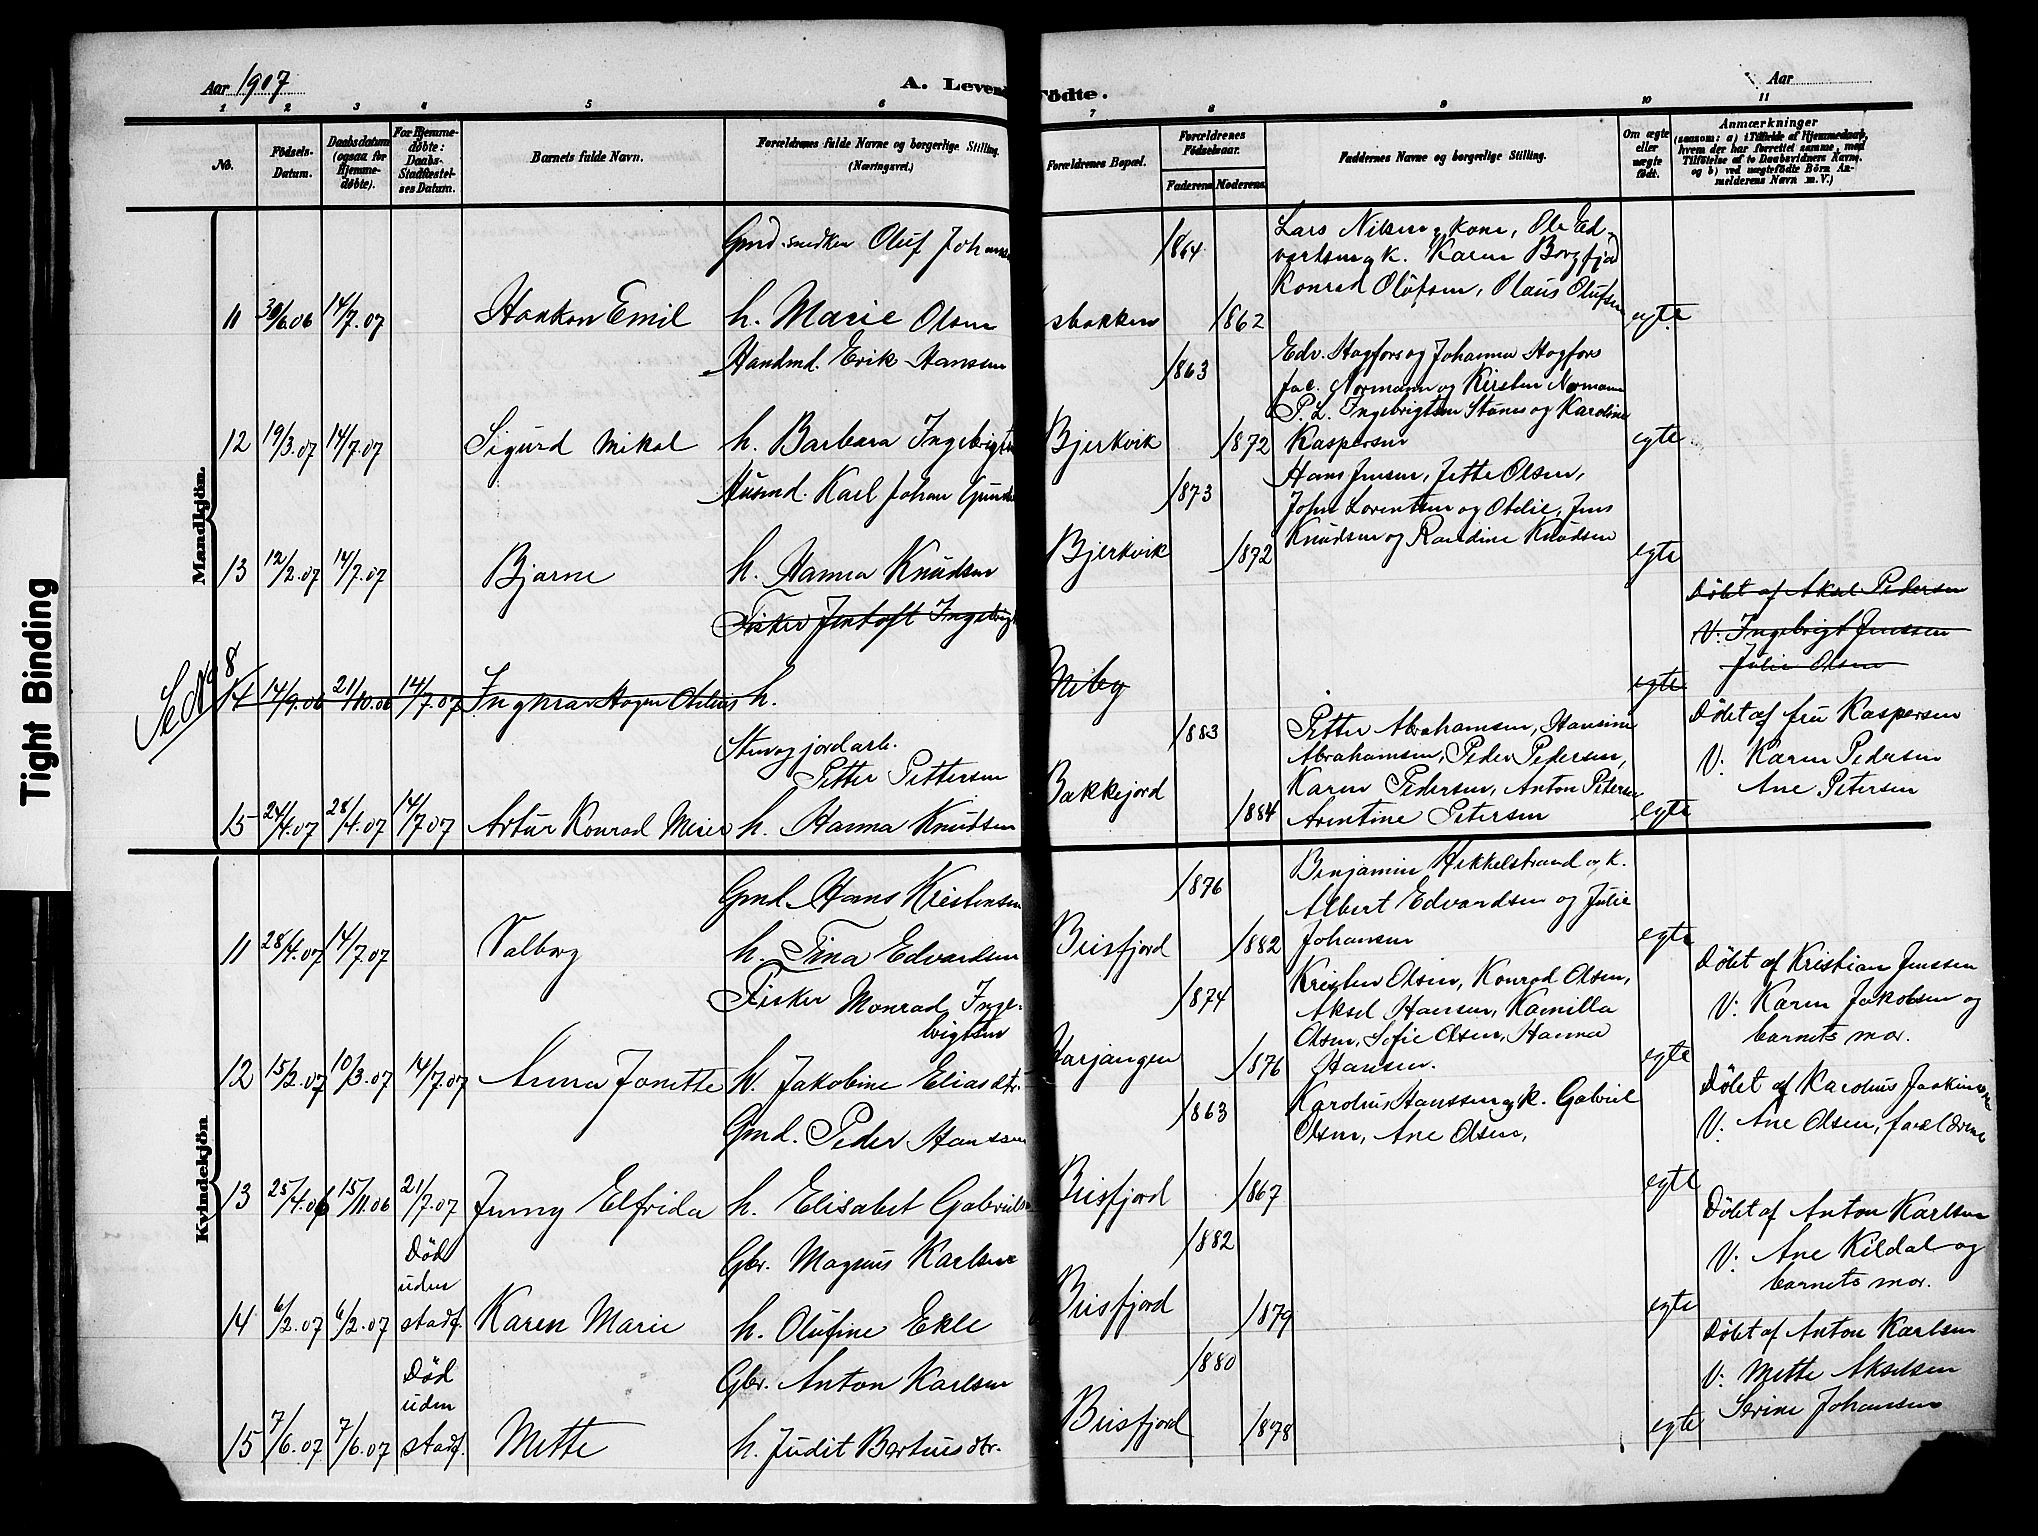 Aar 1907
A. Levende Fødte.
Aar
1 2 3 4 5 6 7 8 9 10 11
No.
Fødsels-Datum.
Daabsdatum (ogsaa for Hjemmedøbte).
For Hjemmedøbte: Daabs-Stadfæstelses Datum.
Barnets fulde Navn.
Forældrenes fulde Navne og borgerlige Stilling. (Næringsvei.)
Forældrenes Bopæl.
Forældrenes Fødselsaar.
Faderens Moderens
Faddernes Navne og borgerlige Stilling.
Om ægte eller uægte født.
Anmærkninger
(saasom: a) i Tilfælde af Hjemmedaab, hvem der har forrettet samme, med Tilføielse af to Daabsvidners Navne, og b) ved uægtefødte Børn Anmelderens Navn m. V.)
Mandkjön.
Gmd. snedker Oluf Johans
1864
Lars Nilsen og kone, Ole Ed-
vartsen og k. Karen Borgfjed
Konrad Olufsen, Olaus Olufsen
11 30/6.06 14/7.07 Haakon Emil h. Marie Olsen sbakken 1862 egte
Handmd. Erik Hanssen
1863
Edv. Hagfors og Johanna Hagfors
Jac. Normann og Kirsten Normann
P. L. Ingebrigtsen Stönes og Karoline
12 19/3.07 14/7.07 Sigurd Mikal h. Barbara Ingebrigts Bjerkvik 1872 Kaspersen egte
Husmd. Karl Johan Gund
1873
Hans Jensen, Jette Olsen,
John Lorentsen og Otelie, Jens
Knudsen og Randine Knudsen
13 12/2.07 14/7.07 Bjarne h. Hanna Knudsen Bjerkvik 1872 egte
Fisker Jentoft Ingebrigt
Døbt af Aksel Pedersen
V: Ingebrigt Jenssen
Julie Olsen
Se No 8
14 14/9.06 21/10.06 14/7.07 Ingmar Hagen Otelius h. egte
Sten og jordarb.
Petter Pettersen
1883
Petter Abrahamsen, Hansine
Abrahamsen, Peder Pedersen,
Karen Pedersen, Anton Petersen
Arentine Petersen
Døbt af fru Kaspersen
V: Karen Pedersen
Ane Petersen
15 24/4.07 28/4.07 14/7.07 Artur Konrad Meier h. Hanna Knudsen Bakkejord 1884 egte
Kvindekjön
Gmd. Hans Kristensen
1876
Benjamin Hekkelstrand og k.
Albert Edvardsen og Julie
Johansen
11 28/4.07 14/7.07 Valborg h. Tina Edvardsen Beisfjord 1882 egte
Fisker Monrad Inge-
brigtsen
1874
Kristen Olsen, Konrad Olsen,
Aksel Hansen, Kamilla
Olsen, Sofie Olsen, Hanna
Hansen.
Døbt af Kristian Jenssen
V: Karen Jakobsen og
barnets mor.
12 15/2.07 10/3.07 14/7.07 Anna Jonette h. Jakobine Eliasdtr. Harjangen 1876 egte
Gmd. Peder Hanssen
1863
Karolius Hanssen og k. Gabriel
Olsen, Ane Olsen,
Døbt af Karolius Joakimsen
V: Ane Olsen, forældrene
13 25/4.06 15/11.06 21/7.07 Jenny Elfrida h. Elisabet Gabrielsen Beisfjord 1867 egte
Gbr. Magnus Karlsen
1882
Død
uden
stadf.
Døbt af Anton Karlsen
V: Ane Kildal og
barnets mor.
14 6/2.07 6/2.07 Karen Marie h. Olufine Ekle Beisfjord 1879 egte
Gbr. Anton Karlsen
1880
Død
uden
stadf.
Døbt af Anton Karlsen
V: Mette Akselsen
Serine Johansen
15 7/6.07 7/6.07 Mette h. Judit Bertheusdtr. Beisfjord 1878 egte
Tight Binding